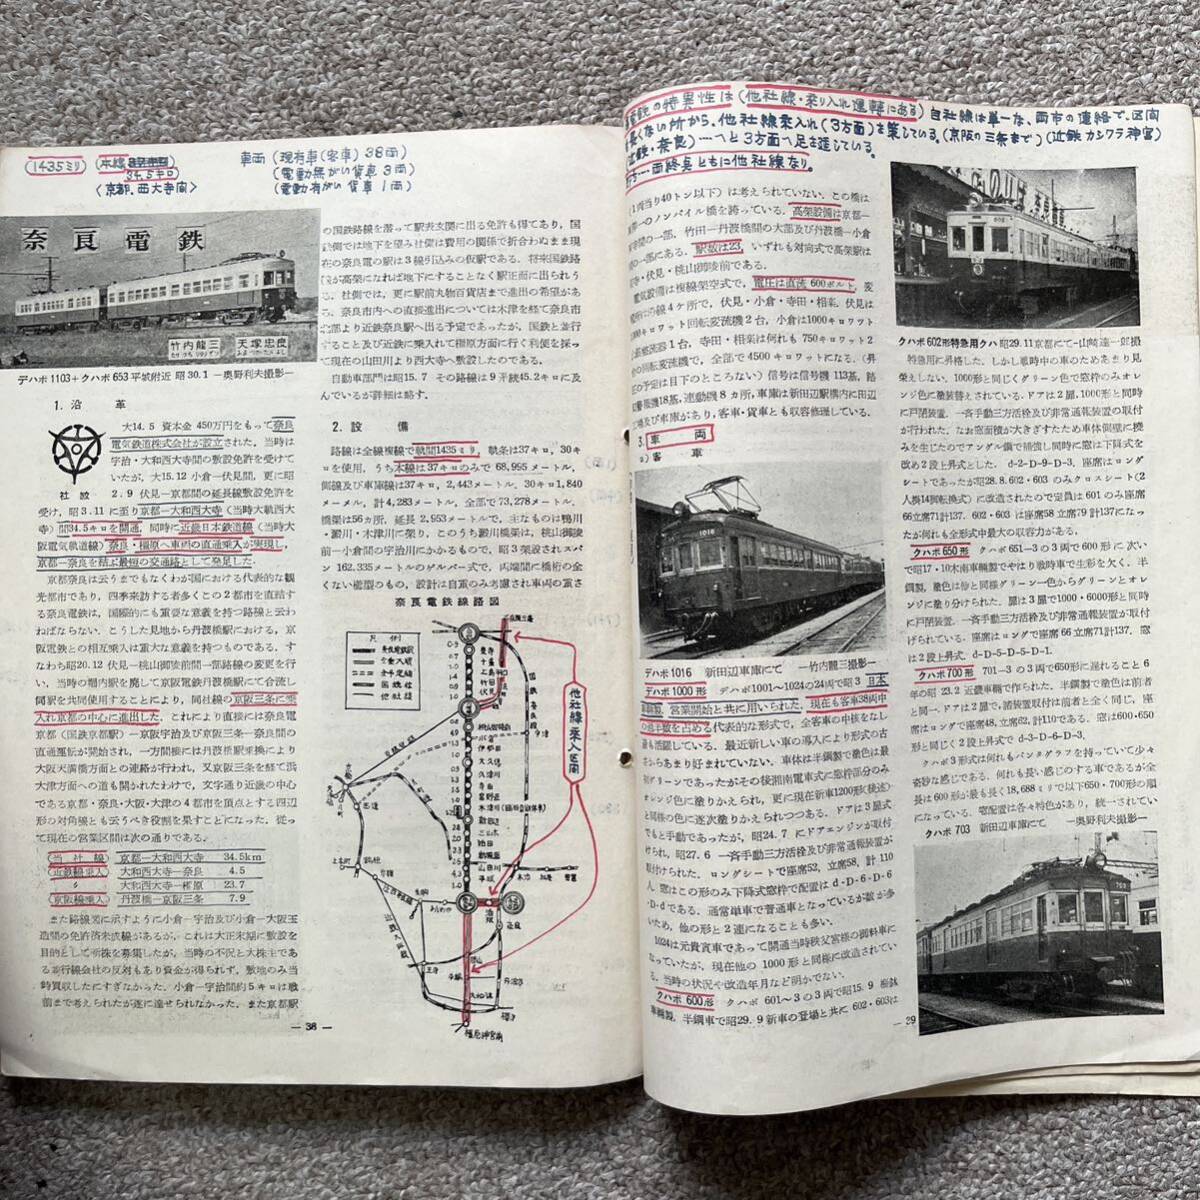 1435ミリ
本線
34.5キロ
〈京都、西大寺間〉
車両(現有車(客車)38両)
(電動無がい貨車3両)
(電動有がい貨車1両)
奈良電鉄
竹内龍三
天塚忠良
デハボ1103+クハボ653 平城附近 昭30.1 —奥野利夫撮影—
1. 沿革
社紋
大14.5 資本金450万円をもって奈良
電気鉄道株式会社が設立された。当時は
宇治・大和西大寺間の敷設免許を受けて
いたが、大15.12 小倉—伏見間、更に昭
2.9 伏見—京都間の延長線敷設免許を
受け、昭3.11に至り京都—大和西大寺(当時大軌西大
寺)間34.5キロを開通、同時に近畿日本鉄道線(当時大
阪電気軌道線)奈良・橿原へ車両の直通乗入が実現し、
京都—奈良を結ぶ最短の交通路として発足した。
京都奈良は云うまでもなくわが国における代表的な観
光都市であり、四季来訪する者多くこの2都市を直結す
る奈良電鉄は、国際的にも重要な意義を持つ路線と云わ
ねばならない。こうした見地から丹波橋駅における、京
阪電鉄との相互乗入は重大な意義を持つものである。す
なわち昭20.12 伏見—桃山御陵前間一部路線の変更を行
い、当時の堀内駅を廃して京阪電鉄丹波橋駅にて合流し
同駅を共同使用することにより、同社線の京阪三条に乗
入れ京都の中心に進出した。これにより直接には奈良電
京都(国鉄京都駅)—京阪宇治及び京阪三条—奈良間の
直通運転が開始され、一方間接には丹波橋駅乗換により
大阪天満橋方面との連絡が行われ、又京阪三条を経て浜
大津方面への道も開かれたわけで、文字通り近畿の中心
である京都・奈良・大阪・大津の4都市を頂点とする四辺
形の対角線とも云うべき役割を果すことになった。従っ
て現在の営業区間は次の通りである。
(当社線) 京都—大和西大寺 34.5km
(近鉄線乗入) 大和西大寺—奈良 4.5
大和西大寺—橿原 23.7
(京阪線乗入) 丹波橋—京阪三条 7.9
また路線図に示すように小倉—宇治及び小倉—大阪玉
造間の免許済未成線があるが、これは大正末期に敷設を
目的として新株を募集したが、当時の不況と大株主であ
る並行線会社の反対もあり資金が得られず、敷地のみ当
時買収したにすぎなかった。小倉—宇治間約5キロは戦
前まで考えられたが遂に達せられなかった。また京都駅
の国鉄路線を潜って駅表玄関に出る免許も得てあり、国
鉄側では地下を望み社側は費用の関係で折合わぬまま現
在の奈良電の駅は3線引込みの仮駅である。将来国鉄路
線が高架になれば地下にすることなく駅正面に出られう
る。社側では、更に駅前丸物百貨店まで進出の希望があ
る。奈良市内への直接進出については木津を経て奈良市
北部より近鉄奈良駅へ出る予定であったが、国鉄と並行
すること及び近鉄に乗入れて橿原方面に行く利便を採っ
て現在の山田川より西大寺へ敷設したのである。
自動車部門は昭15.7 その路線は9系統45.2キロに及
んでいるが詳細は略す。
2. 設備
路線は全線複線で軌間1435ミリ、軌条は37キロ、30キ
ロを使用、うち本線は37キロのみで68,995メートル、
側線及び車庫線は37キロ、2,443メートル、30キロ1,840
メーメル、計4,283メートル、全部で73,278メートル、
橋梁は56カ所、延長2,953メートルで、主なものは鴨川
・澱川・木津川に架り、このうち澱川橋梁は、桃山御陵
前—小倉間の宇治川にかかるもので、昭3架設されスパ
ン162.335メートルのゲルバー式で、両端間に橋桁の全
くない橋型のもの、設計は自重のみ考慮され車両の重さ
奈良電鉄線路図
凡例
他社線乗入区間
橿原神宮前
— 38 —
電鉄の特異性は(他社線・乗り入れ運転にある)自社線は単一な、両市の連絡で、区間
も長くない所から、他社線乗入れ(3方面)を策している。(京阪の三条まで)(近鉄カシワラ神宮)
(近鉄・奈良)…へと3方面へ足を延している。
…両終点ともに他社線なり。
(1両当り40トン以下)は考えられていない。この橋は
一のノンパイル橋を誇っている。高架設備は京都—
間の一部、竹田—丹波橋間の大部及び丹波橋—小倉
間の一部にある。駅数は23、いずれも対向式で高架駅は
寺・伏見・桃山御陵前である。
電気設備は複線架空式で、電圧は直流600ボルト、変
電所は沿線4ケ所で、伏見・小倉・寺田・相楽、伏見は
キロワット回転変流機2台、小倉は1000キロワット
変流器1台、寺田・相楽は何れも750キロワット2
回転変流機で、全部で4500キロワットになる。(昇
圧の予定は目下のところない)信号は信号機113基、踏
切警報機18基、連動機8カ所、車庫は新田辺駅構内に田辺
工場及び車庫があり、客車・貨車とも収容修理している。
3. 車両
1) 客車
デハボ1016 新田辺車庫にて —竹内龍三撮影—
デハボ1000形 デハボ1001〜1024の24両で昭3 日本
車輛製、営業開始と共に用いられた。現在も客車38両中
の過半数を占める代表的な形式で、全客車の中核をなし
最も活躍している。最近新しい車の導入により形式の古
さからあまり好まれていない。車体は半鋼製で塗色は最
初グリーンであったがその後湘南電車式に窓枠部分のみ
オレンジ色に塗りかえられ、更に現在新車1200形(後述)
と同様の色に逐次塗りかえられつつある。ドアは3扉式
でもと手動であったが、昭24.7 にドアエンジンが取付
けられ、昭27.6 一斉手動三方活栓及び非常通報装置が
取付けられた。ロングシートで座席52、立席58、計110
人。窓はこの形のみ下降式で窓枠配置はd-D-6-D-6
-D-dである。通常単車で普通車となっているが数が多
いため、他の形と2連になることも多い。
1024は元貴賓車であって開通当時秩父宮様の御料車に
なっていたが、現在他の1000形と同様に改造されてい
る。当時の状況や改造年月など明かでない。
クハボ600形 クハボ601〜3の3両で昭15.9
車輛製、半鋼車で昭29.9新車の登場と共に602・603は
クハボ602形特急用クハ 昭29.11京都にて—山崎達一郎撮
特急用に昇格した。しかし戦時中の車のためあまり見
栄えしない。1000形と同じくグリーン色で窓枠のみオレ
ンジ色に塗装替えされている。ドアは2扉、1000形と同時
に戸閉装置、一斉手動三方活栓及び非常通報装置の取付
が行われた。なお窓面積が大きすぎたため車体側壁に撓
みを生じたのでアングル鋼で補強し同時に窓は下昇式を
改め2段上昇式とした。d-2-D-9-D-3、座席はロング
シートであったが昭28.8 602・603 のみクロスシート(2
人掛14個転換式)に改造されたので定員は601のみ座席
66立席71計137、602・603 は座席58立席79計137になっ
たが何れも全形式中最大の収容力がある。
クハボ650形 クハボ651—3の3両で600形に次い
で昭17・10木南車輛製でやはり戦時車で生彩を欠く。半
鋼製、塗色は他と同様グリーン一色からグリーンとオレ
ンジに塗り分けられた。扉は3扉で1000・600形と同時
に戸閉装置、一斉手動三方活栓及び非常通報装置が取付
げられている。座席はロングで座席66立席71計137。窓
は2段上昇式。d-D-5-D-5-D-1。
クハボ700形 701—3の3両で650形に淵れること6
年の昭23.2近畿車輛で作られた。半鋼製で塗色は前者
と同一、ドアは2扉で、諸装置取付は前者と全く同じ、座
席はロングで座席48、立席62、計110である。窓は600・650
形と同じく2段上昇式でd-3-D-6-D-3。
クハボ3形式は何れもパンタグラフを持っていて少々
奇妙な感じである。何れも長い感じのする車であるが全
長は600形が最も長く18,688ミリで以下650・700形の順
になっている。窓配置は各々特色があり、統一されてい
クハボ703 新田辺車庫にて —奥野利夫撮影—
29